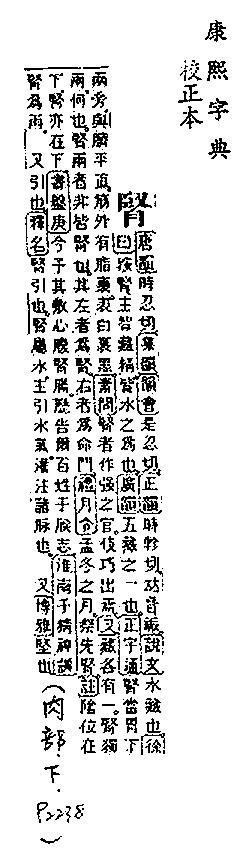 康熙字典
校正本
腎
唐韻時忍切集韻韻會是忍切正韻時軫切𠀤音蜃說文水藏也徐
曰按腎主智藏精皆水之爲也廣韻五藏之一也正字通腎當胃下
兩旁與臍平直筋外有脂裹表白裏黑素問腎者作强之官伎巧出焉又藏各有一腎獨
兩何也腎兩者非皆腎也其左者爲腎右者爲命門禮月令孟冬之月祭先腎註陰位在
下腎亦在下書盤庚今予其敷心腹腎腸歷告爾百姓于朕志淮南子精神訓
腎爲雨又引也釋名腎引也腎屬水主引水氣灌注諸脉也又博雅堅也
(肉部.下.
P2238
)